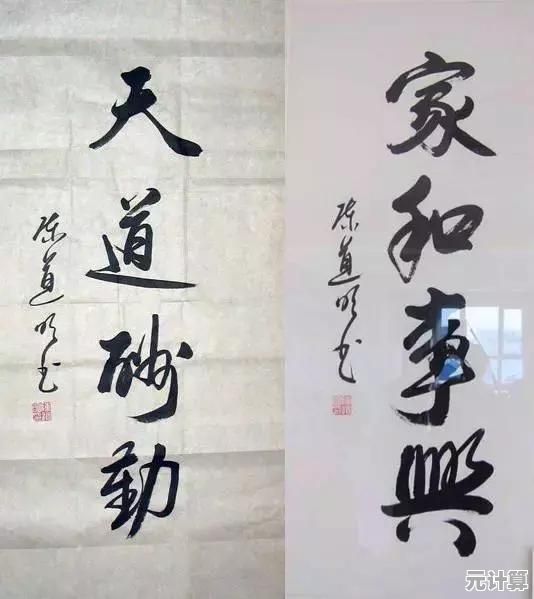 天道酬勤
陈道明书
家和事興
陈道明书
元计算